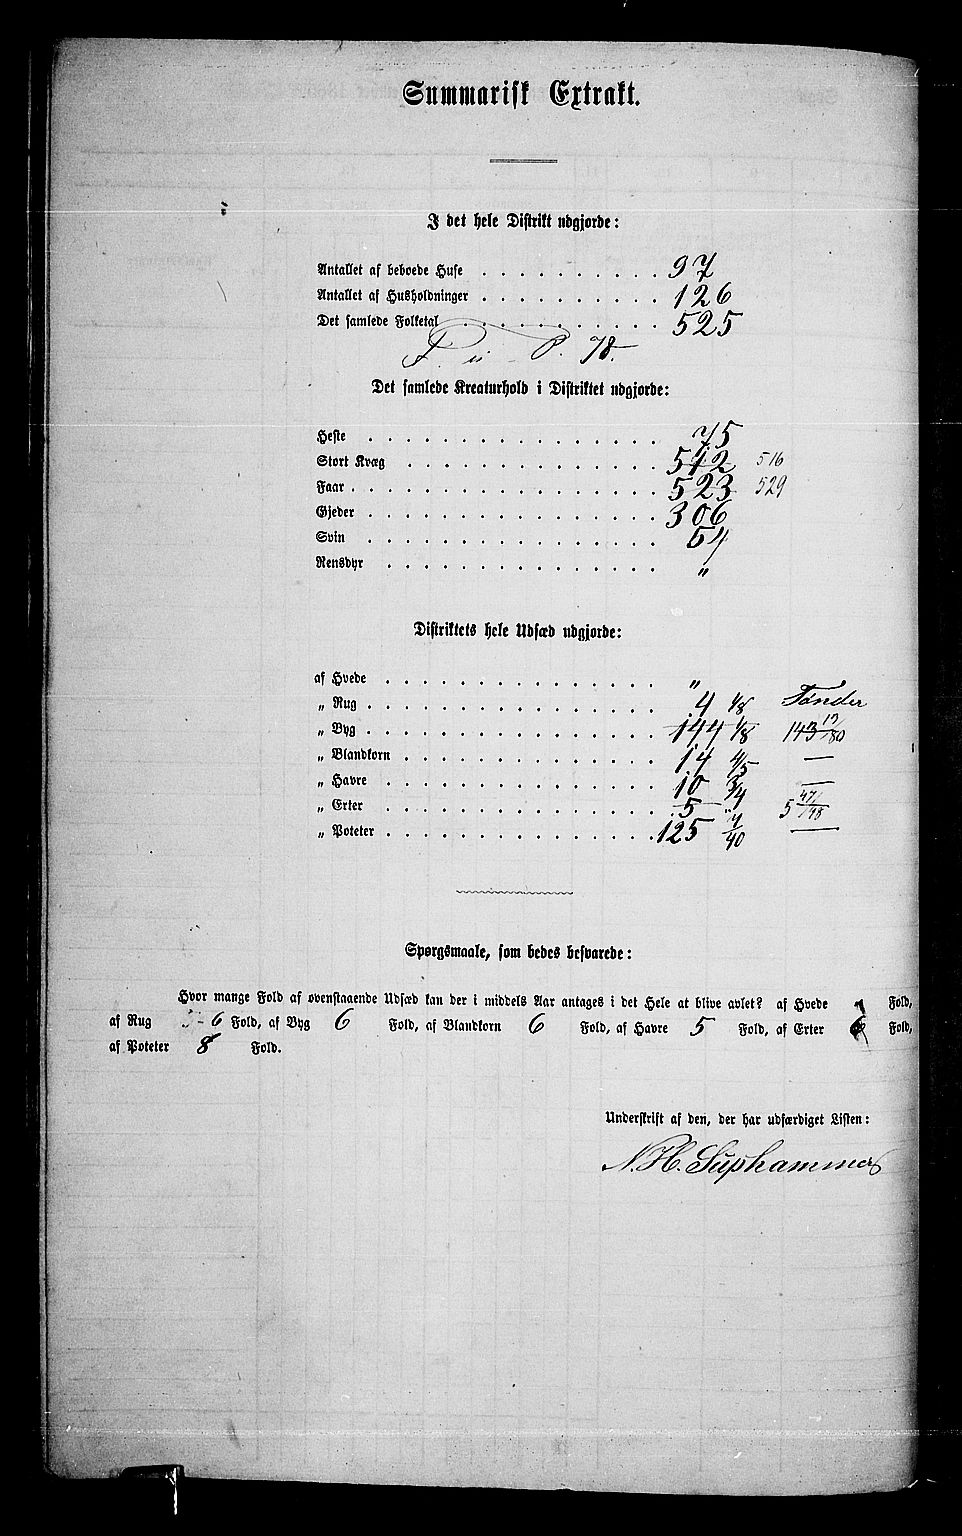 Summarisk Extrakt.
I det hele Distrikt udgjorde:
Antallet af beboede Huse . . . . . . . . . . 97
Antallet af Husholdninger . . . . . . . . . . 126
Det samlede Folketal . . . . . . . . . . . 525
78.
Det samlede Kreaturhold i Distriktet udgjorde:
Heste . . . . . . . . . . . . . . . . 75
Stort Kvæg . . . . . . . . . . . . . . 512 516
Faar . . . . . . . . . . . . . . . . . 523 529
Gjeder . . . . . . . . . . . . . . . . 306
Svin . . . . . . . . . . . . . . . . 64
Rensdyr . . . . . . . . . . . . . . . "
Distriktets hele Udsæd udgjorde:
af Hvede . . . . . . . . . . . . . . . "
„ Rug . . . . . . . . . . . . . . . . 4 1/8 Tønder
„ Byg . . . . . . . . . . . . . . . . 144 1/8 143 17/80
„ Blandkorn . . . . . . . . . . . . . . 14 4/5 —
„ Havre . . . . . . . . . . . . . . . 10 3/4 —
„ Erter . . . . . . . . . . . . . . . 5 " 5 47/48
„ Poteter . . . . . . . . . . . . . . . 125 7/40 —
Spørgsmaale, som bedes besvarede:
Hvor mange Fold af ovenstaaende Udsæd kan der i middels Aar antages i det Hele at blive avlet? af Hvede Fold,
af Rug 5-6 Fold, af Byg 6 Fold, af Blandkorn 6 Fold, af Havre 5 Fold, af Erter 6 Fold,
af Poteter 8 Fold.
Underskrift af den, der har udfærdiget Listen:
N. H. Suphammer